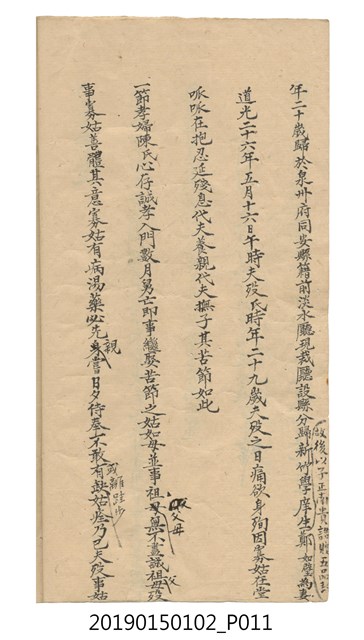 年二十歲歸於泉州府同安縣籍前淡水廳現裁廳設縣分歸新竹學庠生鄭如璧為妻
故後以子正南貴誥贈五品
道光二十六年五月十六日午時夫歿氏時年二十九歲夫歿之日痛欲身殉因寡姑在堂
呱呱在抱忍延殘息代夫養親代夫撫子其苦節如此
一節孝婦陳氏心存誠孝入門數月舅亡即事繼娶苦節之姑如母並事祖母無不盡誠祖母歿
父母
事寡姑善體其意寡姑有病湯藥必先身嘗日夕侍奉不敢有缺姑痊乃已夫歿事姑
親
或離跬步
20190150102_P011